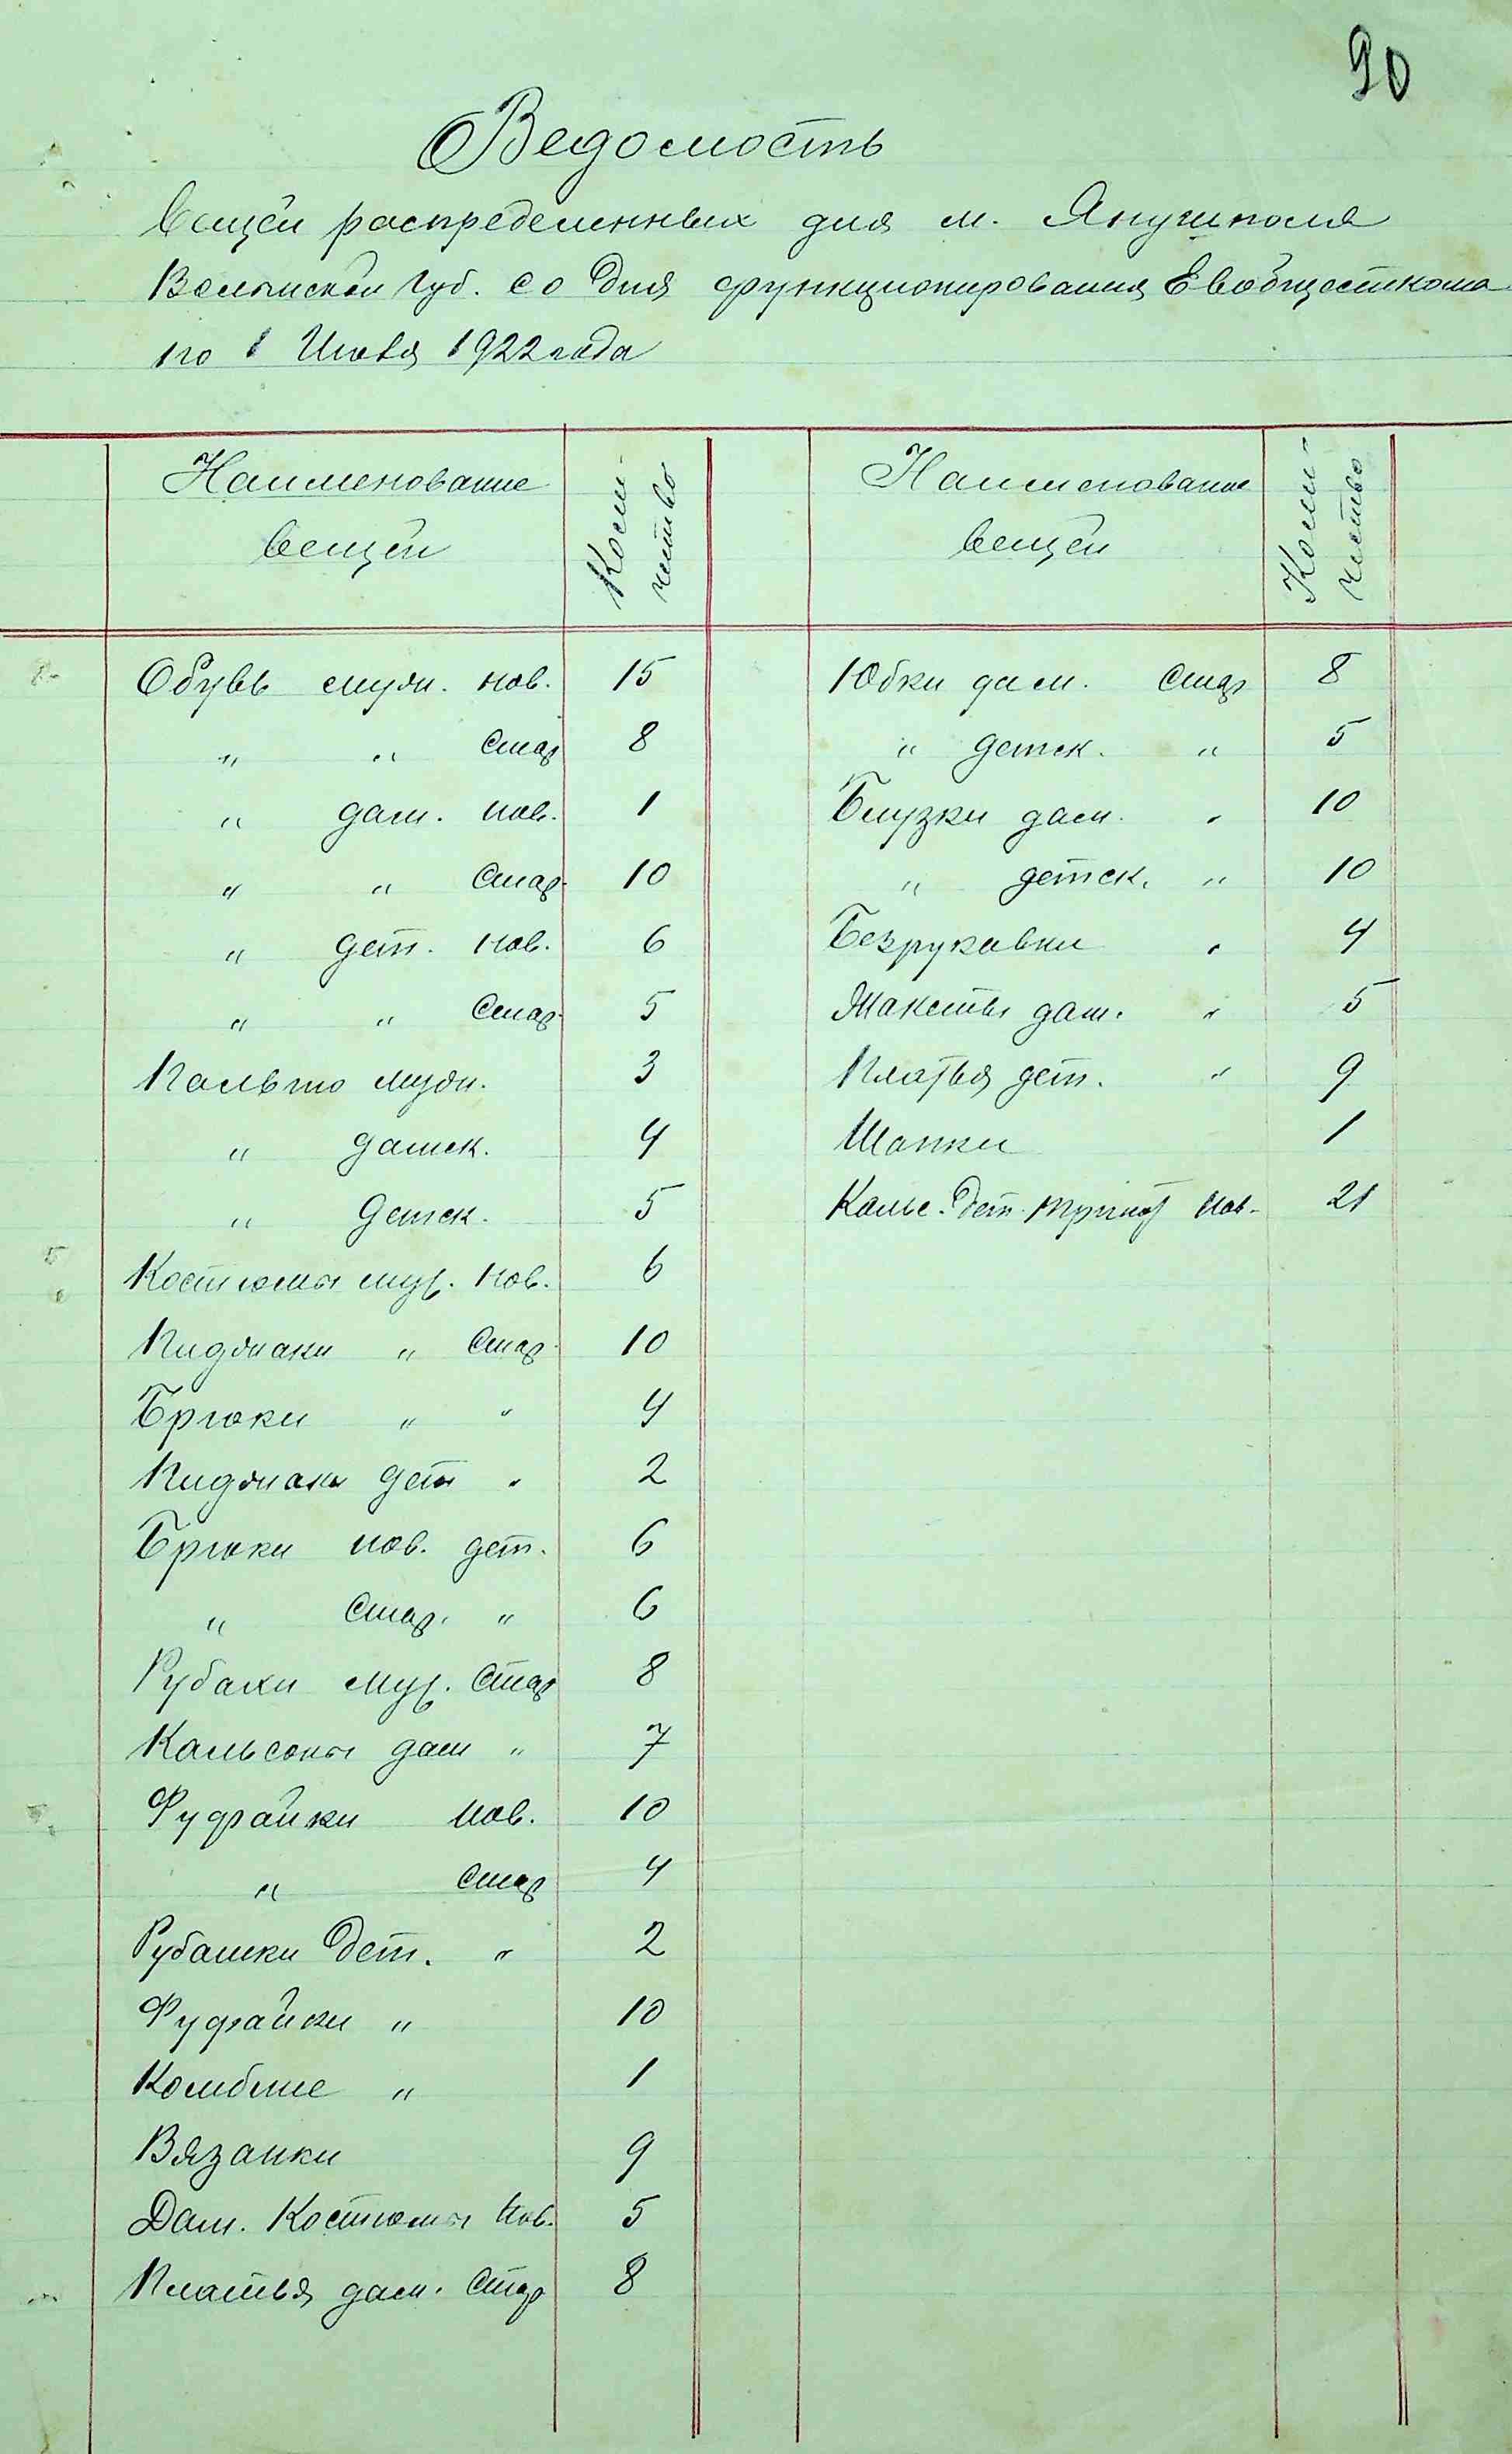 90
Ведомость
вещей распределенных для м. Янушполя
Волынской Губ. со дня функционирования Евобщесткома
по 1 Июля 1922 года
Наименование вещей
Коли-чество
Наименование вещей
Коли-чество
Обувь мужч. нов. 15
" " стар 8
" дам. нов. 1
" " стар. 10
" дет. нов. 6
" " стар. 5
Пальто мужч. 3
" дамск. 4
" детск. 5
Костюмы муж. нов. 6
Пиджаки " стар. 10
Брюки " " 4
Пиджаки дет " 2
Брюки нов. дет. 6
" стар. " 6
Рубахи муж. стар 8
Кальсоны дам " 7
Фуфайки нов. 10
" стар 4
Рубашки дет. " 2
Фуфайки " 10
Комбине " 1
Вязанки 9
Дам. Костюмы нов. 5
Платья дам. стар 8
Юбки дам. стар 8
" детск. " 5
Блузки дам. " 10
" детск. " 10
Безрукавки " 4
Жакеты дам. " 5
Платья дет. " 9
Шапки 1
Кальс. дет. нов. 21